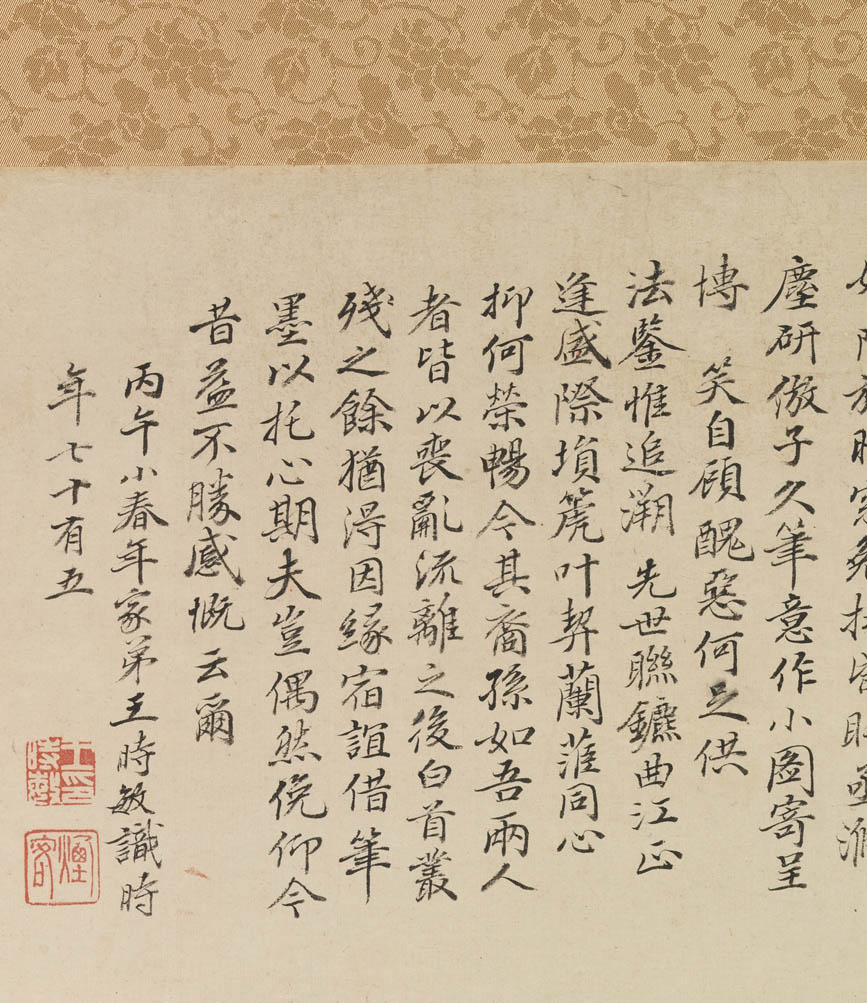 塵研倣子久筆意作小圖寄呈
博 笑自顧醜惡何足供
法鑒惟追溯 先世聯鑣曲江正
逢盛際塤箎叶契蘭蓶同心
抑何榮暢今其裔孫如吾兩人
者皆以喪亂流離之後白首叢
殘之餘猶得因緣宿誼借筆
墨以托心期夫豈偶然俛仰今
昔益不勝感慨云爾
丙午小春年家弟王時敏識時
年七十有五
王時敏印
煙客